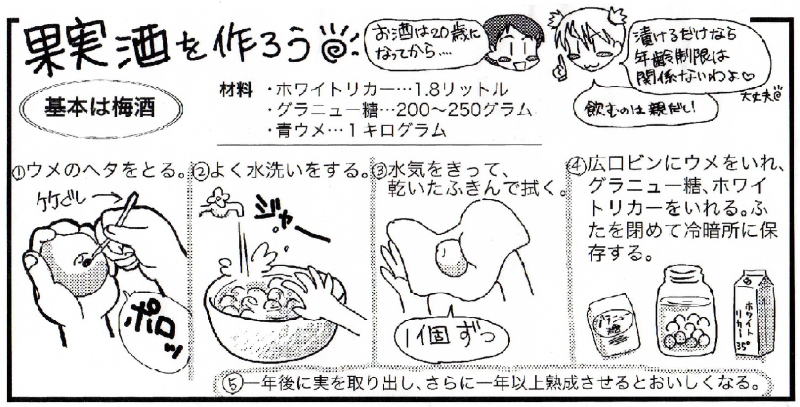 果実酒を作ろう
お酒は20歳に
なってから…
漬けるだけなら
年齢制限は
関係ないわよ♡
大丈夫
飲むのは親だし!
基本は梅酒
材料 ・ホワイトリカー…1.8リットル
・グラニュー糖…200〜250グラム
・青ウメ…1キログラム
①ウメのヘタをとる。
竹ぐし
ポロッ
②よく水洗いをする。
ジャー
③水気をきって、
乾いたふきんで拭く。
1個ずつ
④広口ビンにウメをいれ、
グラニュー糖、ホワイ
トリカーをいれる。ふ
たを閉めて冷暗所に保
存する。
グラニュー
糖
ホワイト
リカー
35°
⑤一年後に実を取り出し、さらに一年以上熟成させるとおいしくなる。